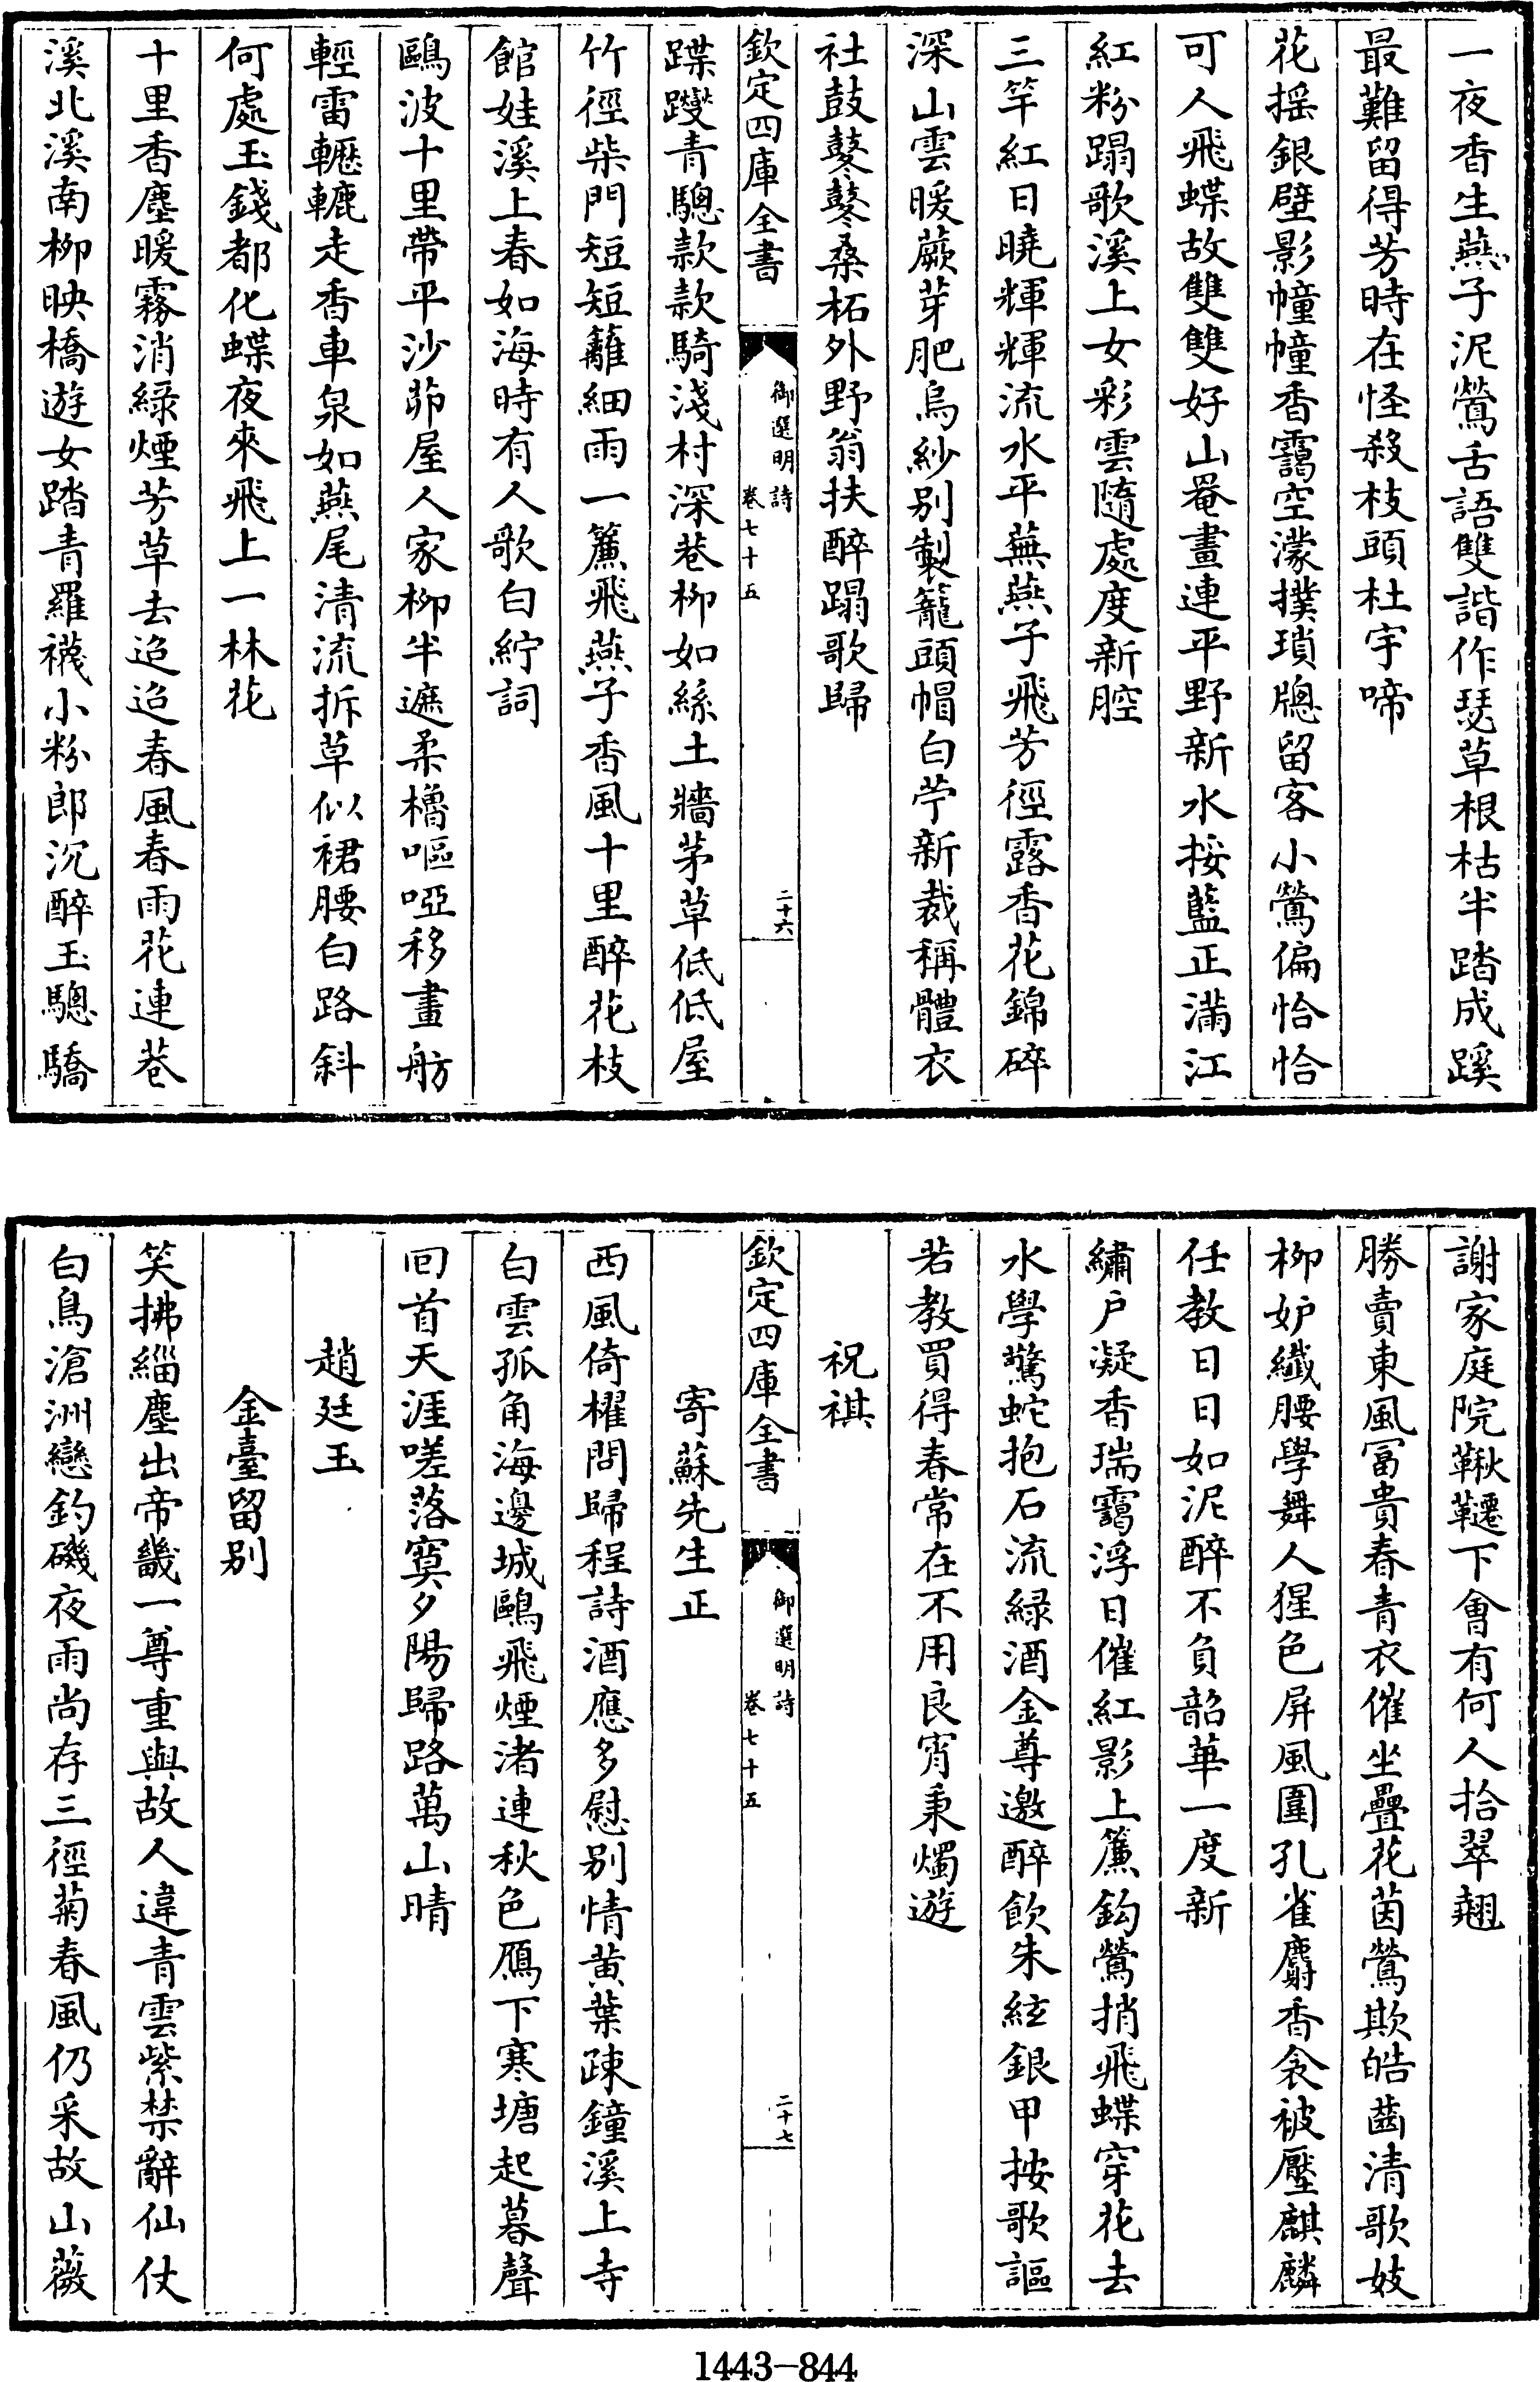 一夜香生燕子泥鶯舌語雙諧作瑟草根枯半踏成蹊
最難留得芳時在怪殺枝頭杜宇啼
花揺銀壁影幢幢香靄空濛撲瑣牕留客小鶯偏恰恰
可人飛蝶故雙雙好山罨畫連平野新水挼藍正滿江
紅粉蹋歌溪上女彩雲隨處度新腔
三竿紅日曉輝輝流水平蕪燕子飛芳徑露香花錦碎
深山雲暖蕨芽肥烏紗別製籠頭帽白苧新裁稱體衣
社鼓鼕鼕桑柘外野翁扶醉蹋歌歸
欽定四庫全書
御選明詩
卷七十五
二十六
蹀躞青驄款款騎淺村深巷柳如絲土牆茅草低低屋
竹徑柴門短短籬細雨一簾飛燕子香風十里醉花枝
館娃溪上春如海時有人歌白紵詞
鷗波十里帶平沙茆屋人家柳半遮柔櫓嘔啞移畫舫
輕雷轣轆走香車泉如燕尾清流拆草似裙腰白路斜
何處玉錢都化蝶夜來飛上一林花
十里香塵暖霧消綠煙芳草去迢迢春風春雨花連巷
溪北溪南柳映橋遊女踏青羅襪小粉郎沉醉玉驄驕
謝家庭院鞦韆下會有何人拾翠翹
勝賣東風冨貴春青衣催坐疊花茵鶯欺皓齒清歌妓
柳妒纖腰學舞人猩色屏風圍孔雀麝香衾被壓麒麟
任教日日如泥醉不負韶華一度新
繡户凝香瑞靄浮日催紅影上簾鈎鶯捎飛蝶穿花去
水學驚蛇抱石流緑酒金尊邀醉飲朱絃銀甲按歌謳
若教買得春常在不用良宵秉燭遊
祝祺
欽定四庫全書
御選明詩
卷七十五
二十七
寄蘇先生正
西風倚櫂問歸程詩酒應多慰别情黄葉疎鐘溪上寺
白雲孤角海邊城鷗飛煙渚連秋色鴈下寒塘起暮聲
回首天涯嗟落寞夕陽歸路萬山晴
趙廷玉
金臺留别
笑拂緇塵出帝畿一尊重與故人違青雲紫禁辭仙仗
白鳥滄洲戀釣磯夜雨尚存三徑菊春風仍采故山薇
1443-844